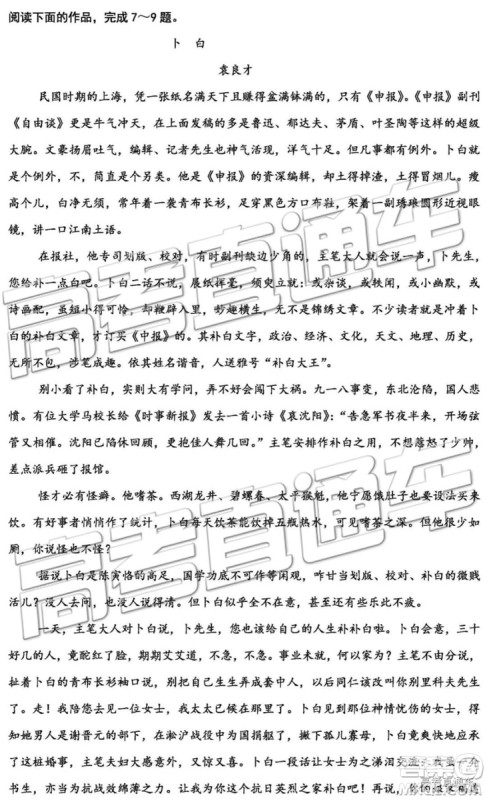 阅读下面的作品，完成7～9题。
卜 白
袁良才
民国时期的上海，凭一张纸名满天下且赚得盆满钵满的，只有《申报》。《申报》副刊
《自由谈》更是牛气冲天，在上面发稿的多是鲁迅、郁达夫、茅盾、叶圣陶等这样的超级
大腕。文豪扬眉吐气，编辑、记者先生也神气活现，洋气十足。但凡事都有例外。卜白就
是个例外，不，简直是个另类。他是《申报》的资深编辑，却土得掉渣，土得冒烟儿。瘦
高个儿，白净无须，常年着一袭青布长衫，足穿黑色方口布鞋，架着一副琇琅圆形近视眼
镜，讲一口江南土语。
在报社，他专司划版、校对，有时副刊缺边少角的，主笔大人就会说一声，卜先生，
您给补一点白吧。卜白二话不说，展纸挥毫，须臾立就：或杂谈，或轶闻，或小幽默，或
诗画配，虽短小得可怜，却鞭辟入里，妙趣横生，无不是锦绣文章。不少读者就是冲着卜
白的补白文章，才订买《申报》的。其补白文字，政治、经济、文化，天文、地理、历史，
无所不包，涉笔成趣。依其姓名谐音，人送雅号“补白大王”。
别小看了补白，实则大有学问，弄不好会闯下大祸。九一八事变，东北沦陷，国人悲
愤。有位大学马校长给《时事新报》发去一首小诗《哀沈阳》：“告急军书夜半来，开场弦
管又相催。沈阳已陷休回顾，更抱佳人舞几回。”主笔安排作补白之用，不想惹恼了少帅，
差点派兵砸了报馆。
怪才必有怪癖。他嗜茶。西湖龙井、碧螺春、太平猴魁，他宁愿饿肚子也要设法买来
饮。有好事者悄悄作了统计，卜白每天饮茶能饮掉五瓶热水，可见嗜茶之深。但他很少如
厕，你说怪也不怪？
据说卜白是陈寅恪的高足，国学功底不可作等闲观，咋甘当划版、校对、补白的微贱
活儿？没人去问，也没人说得清。但卜白似乎全不在意，甚至还有些乐此不疲。
一天，主笔大人对卜白说，卜先生，您也该给自己的人生补补白啦。卜白一怔，三十
好几的人，竟酡红了脸，期期艾艾道，不急，不急。事业未竟，何以家为？主笔不由分说，
扯着卜白的青布长衫袖口说，别把自己生生弄成套中人，以后同仁该改叫你别里科夫先生
了。走！我陪您去见一位女士，我太太已候在那里了。卜白见到那位神情忧伤的女士，得
知她男人是谢晋元的部下，在淞沪战役中为国捐躯了，撇下孤儿寡母，卜白竟爽快地应承
了这桩婚事，主笔夫妇大感意外，又惊又喜。卜白一段话让女士为之涕泪交流：
书生，亦当为抗战效绵薄之力。就让我为这个抗日英烈之家补白吧！再说，你